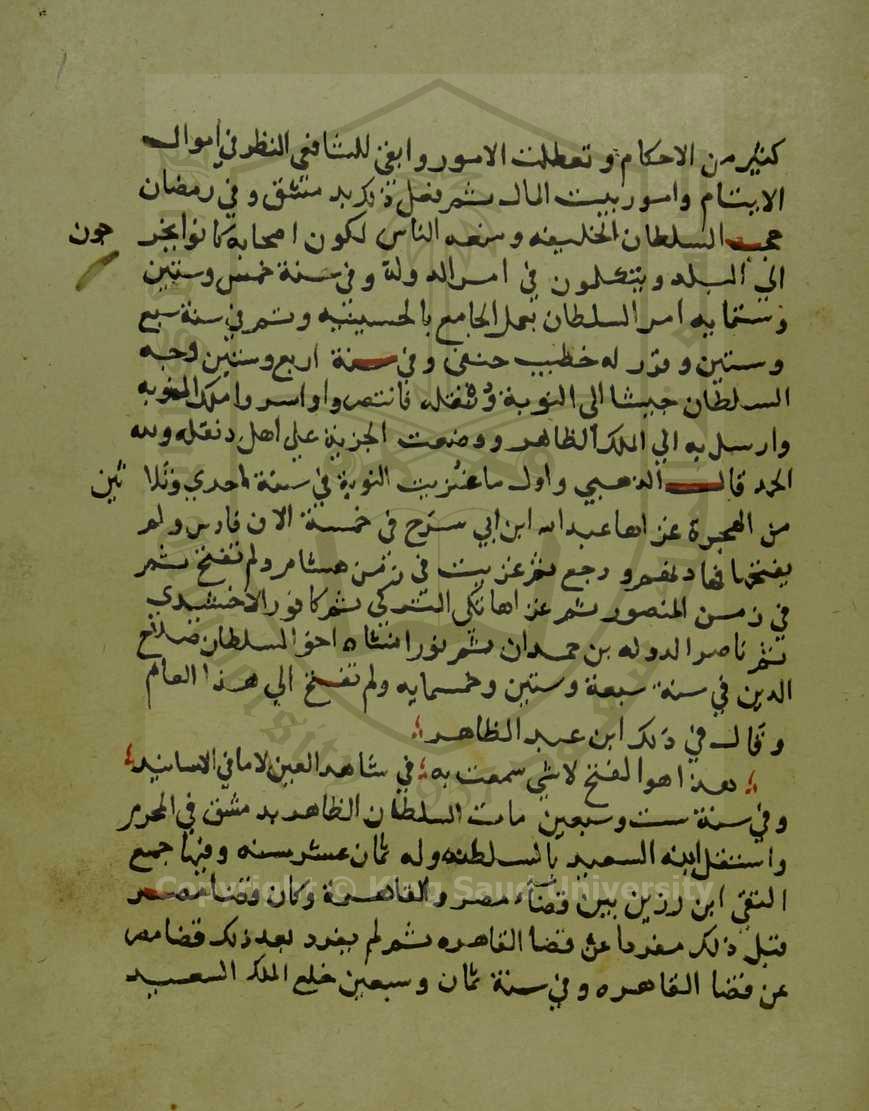 كثير من الاحكام وتعطلت الامور وابقي للشافعي النظر في اموال
الايتام وامور بيت المال ثم فعل ذلك بدمشق وفي رمضان
حجب السلطان الخليفه ومنعه الناس لكون اصحابه كانوا يخر
جون
الي البلد ويتكلمون في امر الدولة وفي سنة خمس وستين
وستمايه امر السلطان بعمل الجامع بالحسينيه وتم في سنة سبع
وستين وقرر له خطيب حنفي وفي سنة اربع وستين وجه
السلطان جيشا الي النوبة ودنقله فانتصروا واسروا ملك النوبه
وارسل به الي الملك الظاهر ووضعت الجزية علي اهل دنقله ولله
الحمد قال الذهبي واول ما غزيت النوبة في سنة احدي وثلا
ثين
من الهجرة غزاها عبد الله ابن ابي سرح في خمسة الاف فارس ولم
يفتحها فهادنهم ورجع ثم غزيت في زمن هشام ولم تفتح ثم
في زمن المنصور ثم غزاها تكى التركي ثم كافور الاخشيدي
ثم ناصر الدوله بن حمدان ثم نورانشاه اخو السلطان صلاح
الدين في سنة سبعة وستين وخمسمايه ولم تفتح الي هذا العام
وقال في ذلك ابن عبد الظاهر
هذا هو الفتح لا شي سمعت به في شاهد العين لا ما في الاسانيد
وفي سنة ست وسبعين مات السلطان الظاهر بدمشق في المحرم
واستقل ابنه السعيد بالسلطنه وله ثمان عشر سنه وفيها جمع
التقي ابن رزين بين قضاء مصر والقاهرة وكان قضا مصر
قبل ذلك مفردا عن قضا القاهره ثم لم يفرد بعد ذلك قضا مصر
عن قضا القاهره وفي سنة ثمان وسبعين خلع الملك السعيد
Copyright © King Saud University